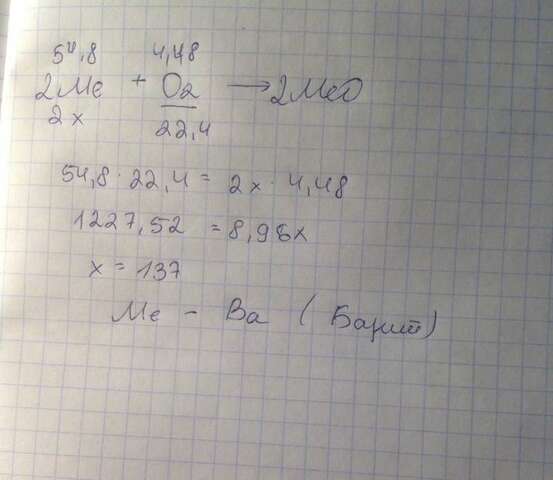 54,8 4,48
2Me + O2 → 2MeO
2x 22,4
54,8 · 22,4 = 2x · 4,48
1227,52 = 8,96x
x = 137
Me - Ba (Барий)